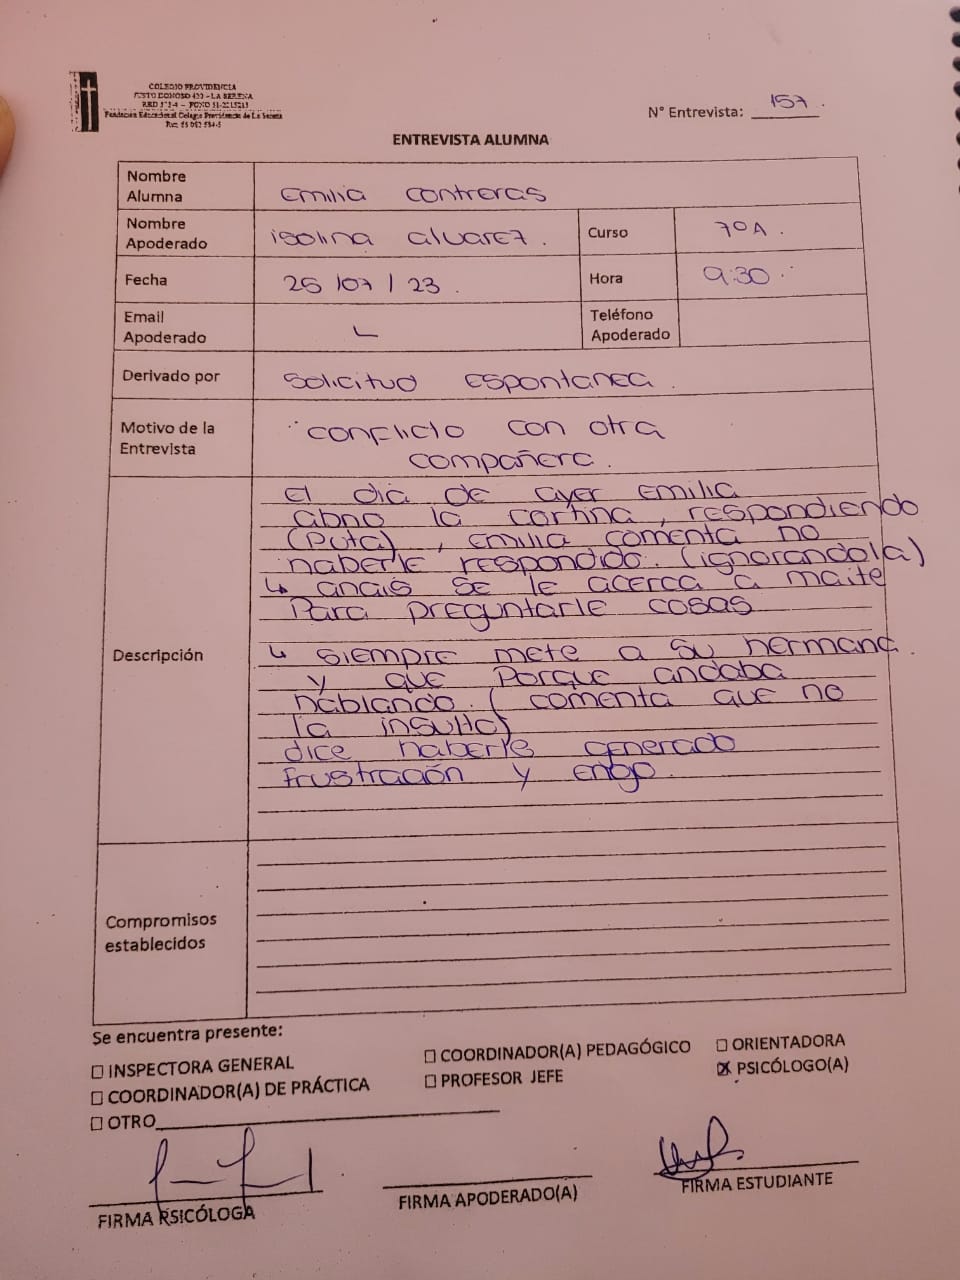 COLEGIO PROVIDENCIA
JUSTO DONOSO 420 – LA SERENA
RBD 573-4 – FONO 51-2215213
Fundación Educacional Colegio Providencia de La Serena
Rut:
N° Entrevista: 157.
ENTREVISTA ALUMNA
Nombre Alumna Emilia Contreras
Nombre Apoderado isolina alvarez. Curso 7ºA.
Fecha 25/07/23. Hora 9:30.
Email Apoderado Teléfono Apoderado
Derivado por Solicitud Espontanea.
Motivo de la Entrevista conflicto con otra
compañera.
Descripción
El dia de ayer Emilia
abrio la cortina, respondiendo
(Puta), Emilia comenta no
haberle respondido. (ignorandola)
↳ anais se le acerca a maite
Para preguntarle cosas
↳ siempre mete a su hermana.
y que Porque andaba
hablando. (comenta que no
la insulto)
dice haberle generado
frustración y enojo.
Compromisos establecidos
Se encuentra presente:
☐ INSPECTORA GENERAL ☐ COORDINADOR(A) PEDAGÓGICO ☐ ORIENTADORA
☐ COORDINADOR(A) DE PRÁCTICA ☐ PROFESOR JEFE ☒ PSICÓLOGO(A)
☐ OTRO
FIRMA PSICÓLOGA FIRMA APODERADO(A) FIRMA ESTUDIANTE